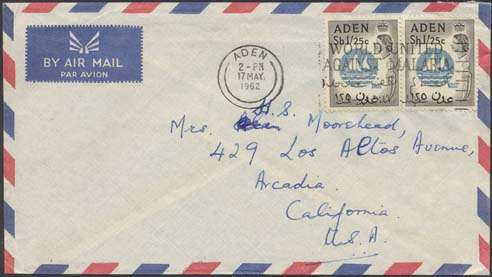 BY AIR MAIL
PAR AVION
ADEN
2-PM
17 MAY.
1962
ADEN
Sh1/25c
ADEN
Sh1/25c
WORLD UNITED
AGAINST MALARIA
عدن ١٢٥
عدن ١٢٥
Mrs. H.S. Moorshead,
429 Los Altos Avenue,
Arcadia.
California.
U.S.A.